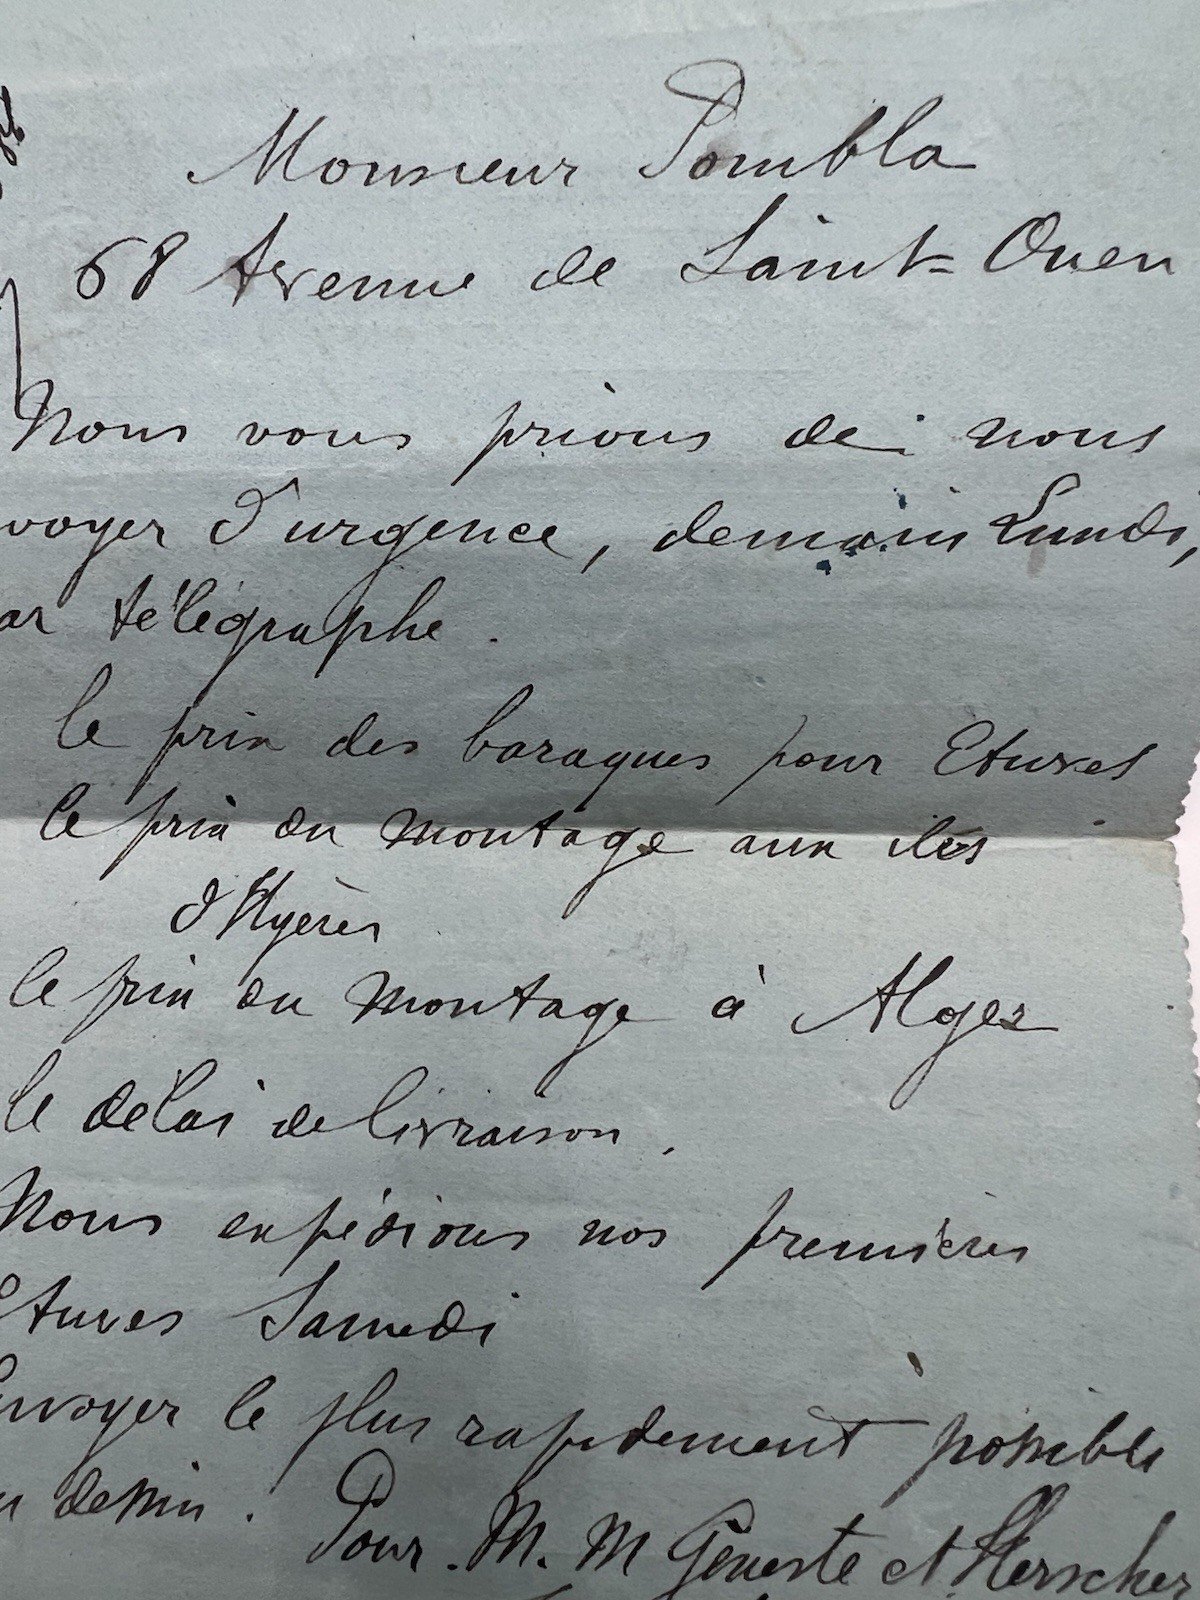 Monsieur Pombla
68 Avenue de Saint-Ouen
Nous vous prions de nous
voyer d'urgence, demain Lundi,
ar télégraphe.
le prix des baraques pour Etuves
le prix du montage aux iles
d'Hyères
le prix du montage à Alger
le délai de livraison.
Nous expédions nos premières
Etuves Samedi
Envoyer le plus rapidement possible
u dessin.
Pour M. M Geneste et Herscher